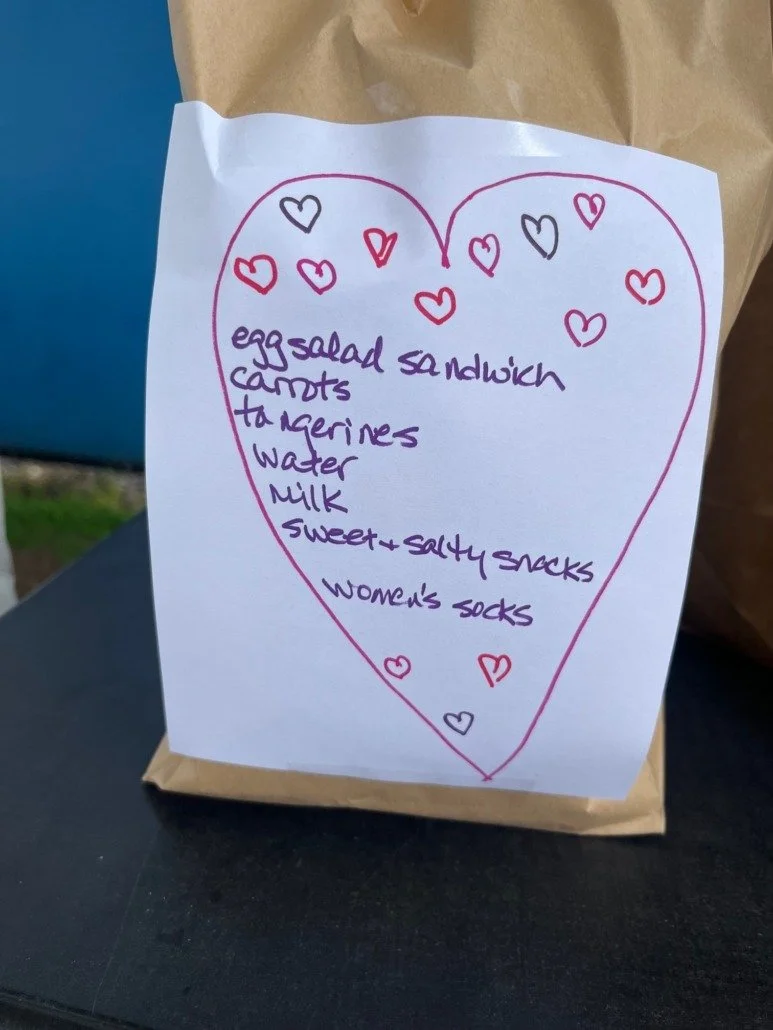 egg salad sandwich
carrots
tangerines
water
milk
sweet + salty snacks
women's socks